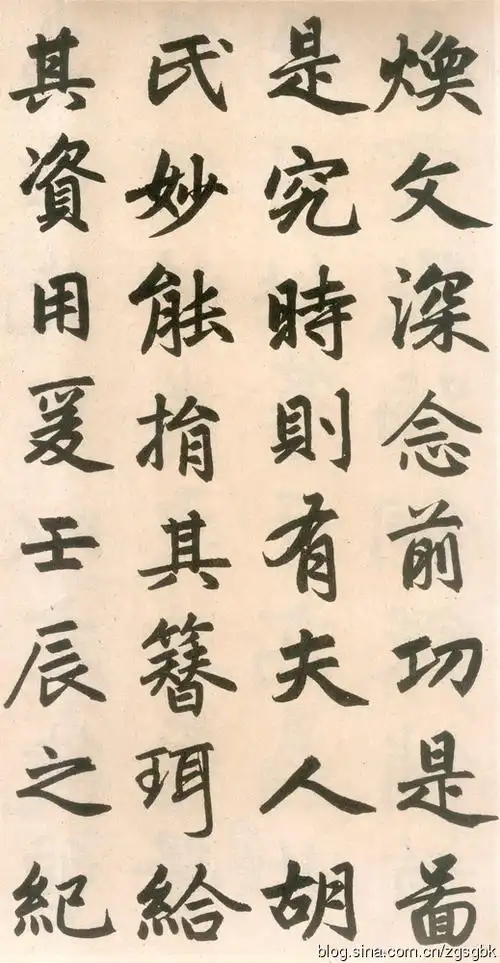 煥文深念前功是啚
是究時則有夫人胡
氏妙能捐其簪珥給
其資用爰壬辰之紀
blog.sina.com.cn/zgsgbk